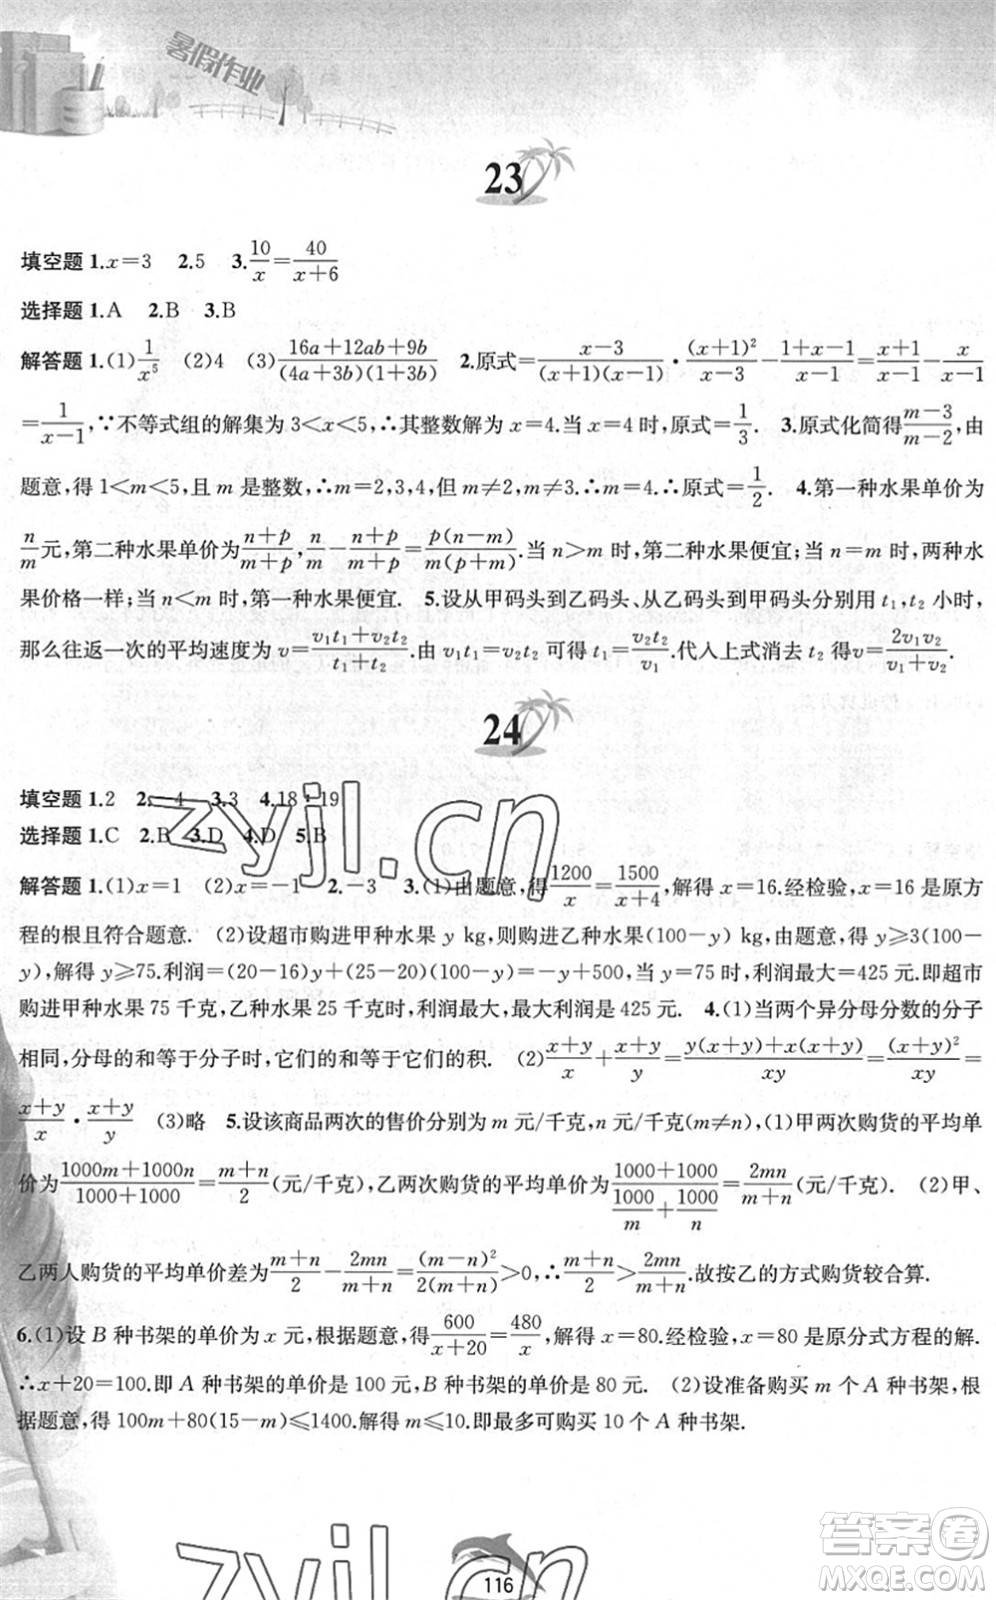 暑假作业
23
填空题 1.x=3 2.5 3.10/x=40/(x+6)
选择题 1.A 2.B 3.B
解答题 1.(1)1/x⁵ (2)4 (3)(16a+12ab+9b)/((4a+3b)(1+3b)) 2.原式=(x-3)/((x+1)(x-1))·(x+1)²/(x-3)-(1+x-1)/(x-1)=(x+1)/(x-1)-x/(x-1)
=1/(x-1),∵不等式组的解集为3<x<5,∴其整数解为x=4.当x=4时,原式=1/3. 3.原式化简得(m-3)/(m-2),由
题意,得1<m<5,且m是整数,∴m=2,3,4,但m≠2,m≠3.∴m=4.∴原式=1/2. 4.第一种水果单价为
n/m元,第二种水果单价为(n+p)/(m+p),n/m-(n+p)/(m+p)=p(n-m)/(m(p+m)).当n>m时,第二种水果便宜;当n=m时,两种水
果价格一样;当n<m时,第一种水果便宜. 5.设从甲码头到乙码头、从乙码头到甲码头分别用t₁,t₂小时,
那么往返一次的平均速度为v=(v₁t₁+v₂t₂)/(t₁+t₂).由v₁t₁=v₂t₂可得t₁=v₂t₂/v₁.代入上式消去t₂得v=2v₁v₂/(v₁+v₂).
24
填空题 1.2 2.-4 3.3 4.18:19
选择题 1.C 2.B 3.D 4.D 5.B
解答题 1.(1)x=1 (2)x=-1 2.-3 3.(1)由题意,得1200/x=1500/(x+4),解得x=16.经检验,x=16是原方
程的根且符合题意. (2)设超市购进甲种水果y kg,则购进乙种水果(100-y) kg,由题意,得y≥3(100-
y),解得y≥75.利润=(20-16)y+(25-20)(100-y)=-y+500,当y=75时,利润最大=425元.即超市
购进甲种水果75千克,乙种水果25千克时,利润最大,最大利润是425元. 4.(1)当两个异分母分数的分子
相同,分母的和等于分子时,它们的和等于它们的积. (2)(x+y)/x+(x+y)/y=(y(x+y)+x(x+y))/xy=(x+y)²/xy=
(x+y)/x·(x+y)/y (3)略 5.设该商品两次的售价分别为m元/千克,n元/千克(m≠n),(1)甲两次购货的平均单
价为(1000m+1000n)/(1000+1000)=(m+n)/2(元/千克),乙两次购货的平均单价为(1000+1000)/(1000/m+1000/n)=2mn/(m+n)(元/千克). (2)甲、
乙两人购货的平均单价差为(m+n)/2-2mn/(m+n)=(m-n)²/(2(m+n))>0,∴(m+n)/2>2mn/(m+n).故按乙的方式购货较合算.
6.(1)设B种书架的单价为x元,根据题意,得600/(x+20)=480/x,解得x=80.经检验,x=80是原分式方程的解.
∴x+20=100.即A种书架的单价是100元,B种书架的单价是80元. (2)设准备购买m个A种书架,根
据题意,得100m+80(15-m)≤1400.解得m≤10.即最多可购买10个A种书架.
zyjl.cn
zyjl.cn
116
答案圈
MXQE.COM